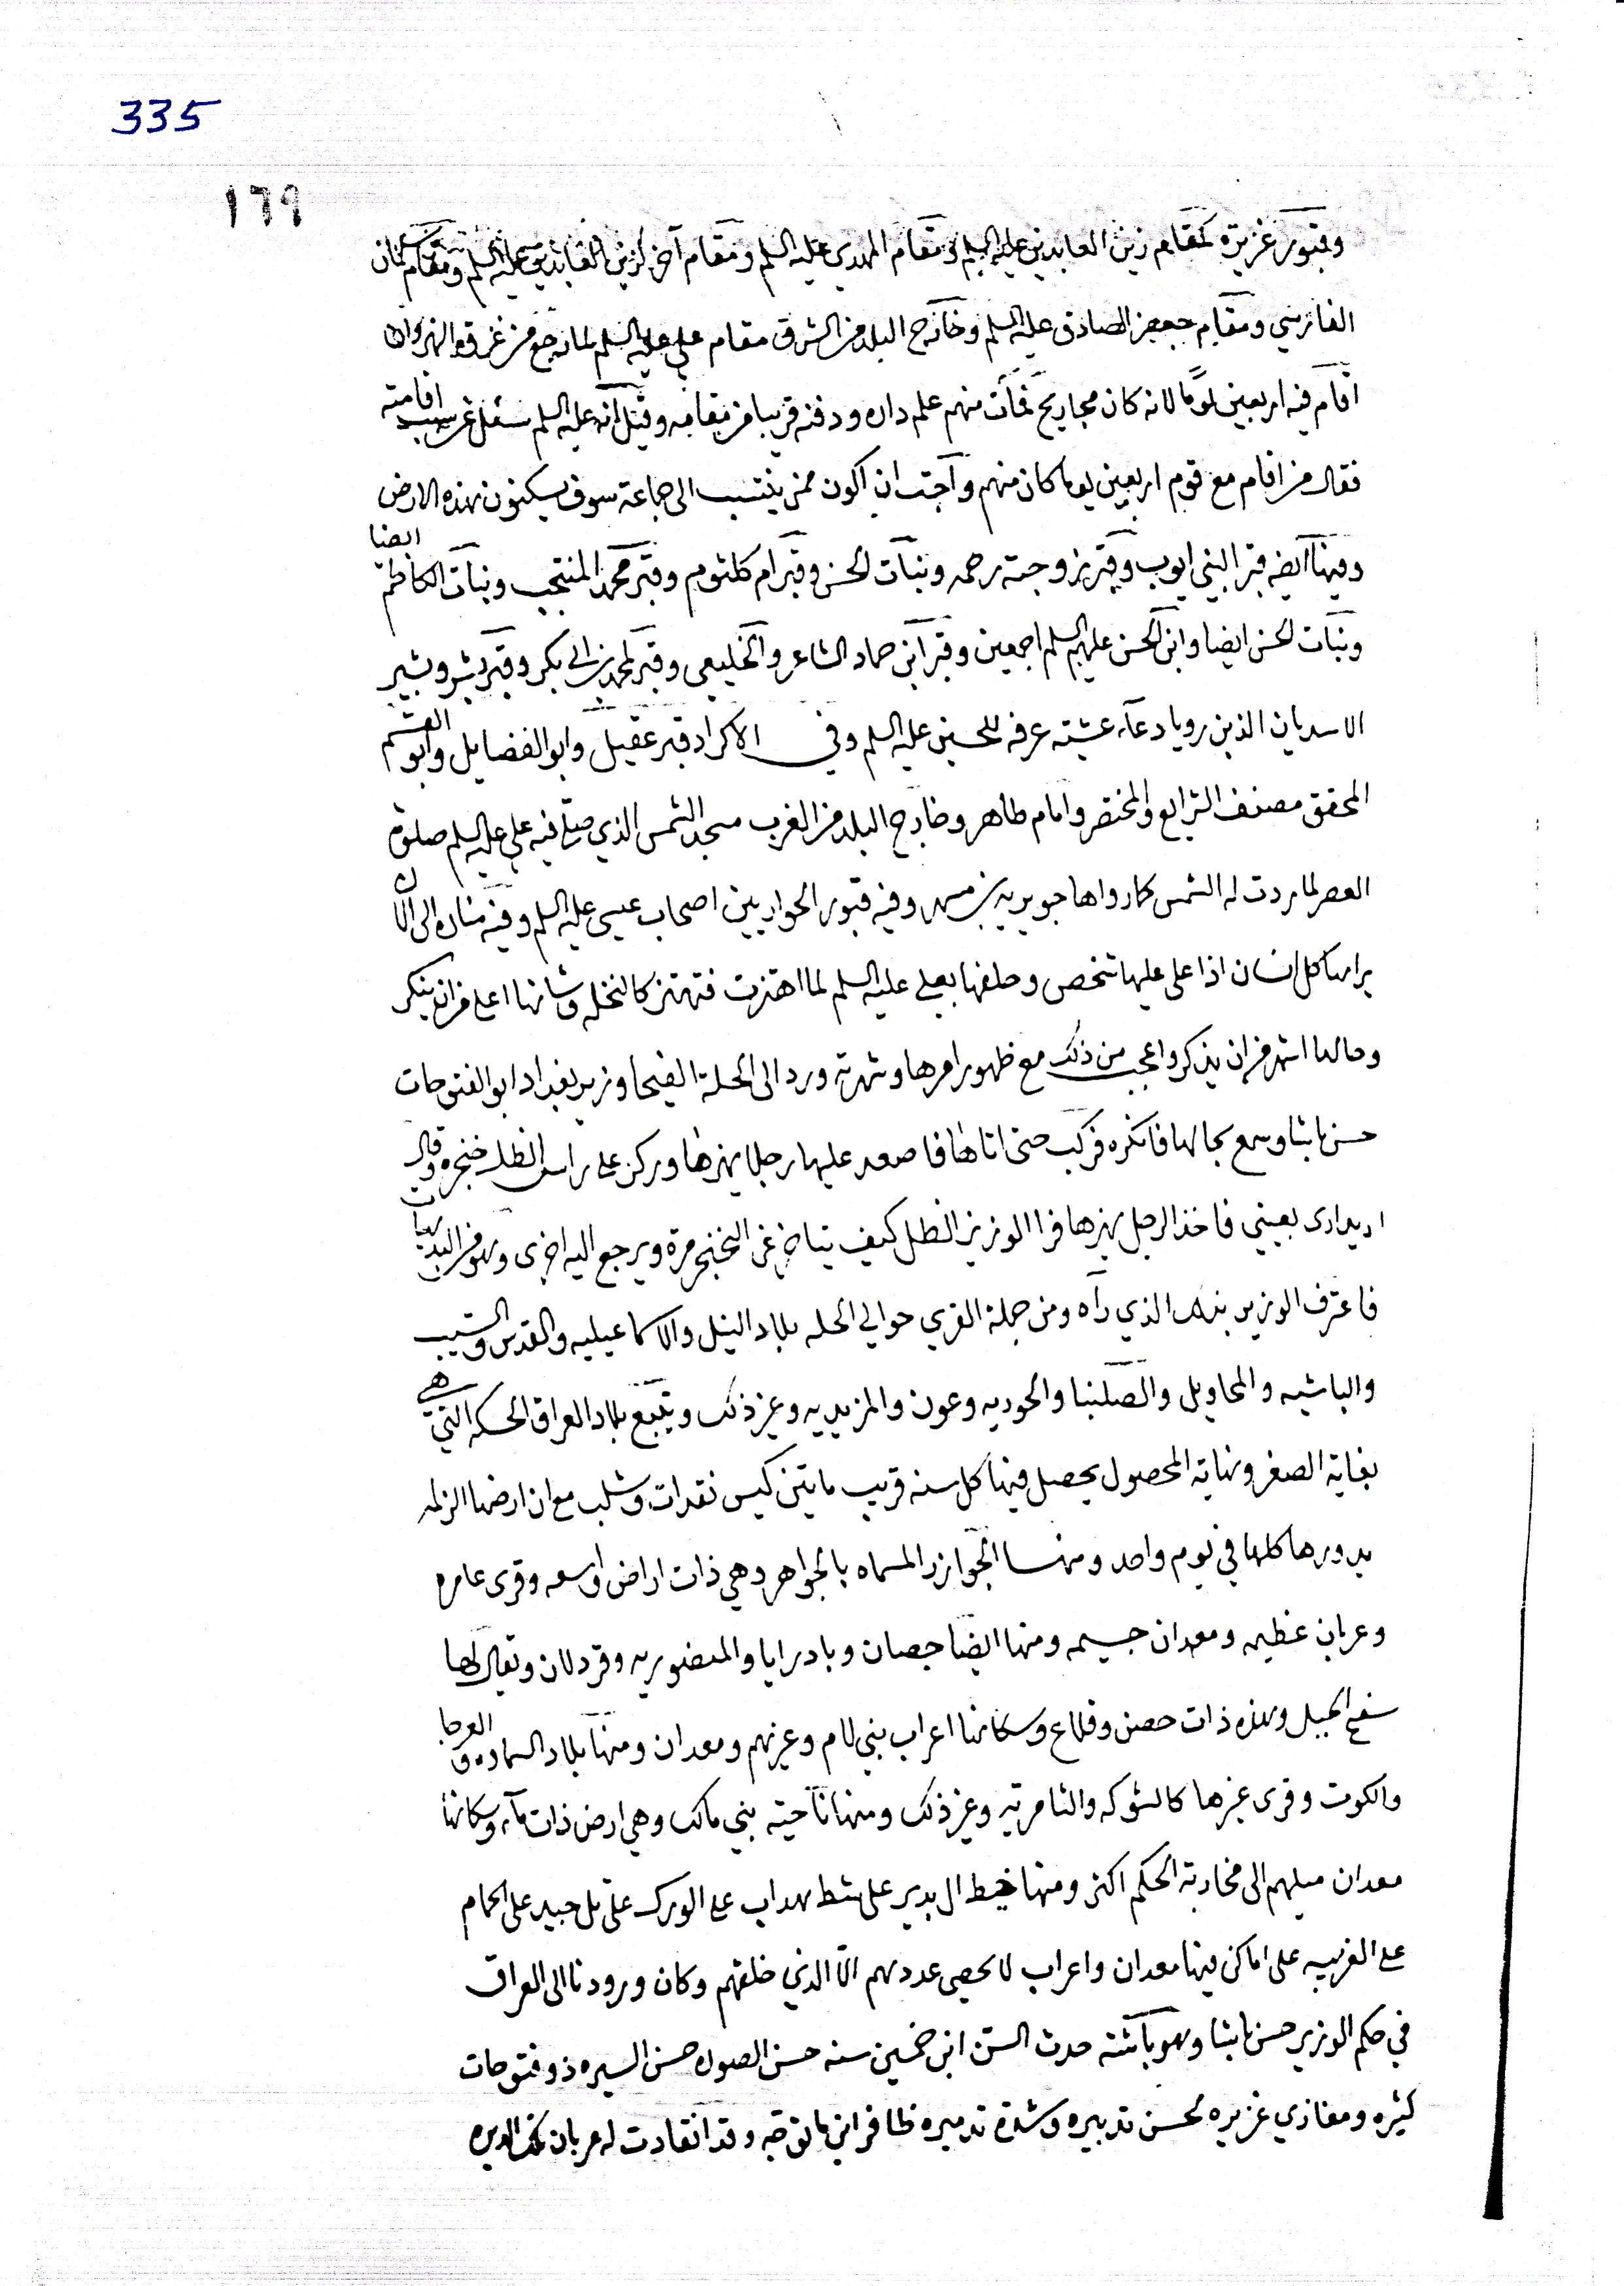 335
١٦٩
وقبور غزيرة كمقام زين العابدين عليه السلم ومقام المهدي عليه السلم ومقام آخر لزين العابدين عليه السلم ومقام سلمان
الفارسي ومقام جعفر الصادق عليه السلم وخارج البلد من الشرق مقام علي عليه السلم لما رجع من غزوة النهروان
اقام فيه اربعين يومًا لانه كان مجاريح فمات منهم علم دار ودفنه قريبا من مقامه وقيل انه عليه السلم سئل عن سبب اقامته
فقال من اقام مع قوم اربعين يوما كان منهم واجبت ان اكون ممن ينتسب الى جماعة سوف يسكنون بهذه الارض
وفيها ايضا قبر النبي ايوب وقبر زوجته رحمه وبنات الحسن وقبر ام كلثوم وقبر محمد المنتجب وبنات الكاظم ايضا
وبنات الحسن ايضا وابن الحسن عليهم السلم اجمعين وقبر ابن حماد الشاعر والخليعي وقبر محمد بن ابي بكر وقبر بشر وبشير
الاسديان الذين رويا دعآء عشية عرفه للحسين عليه السلم وفي الاكراد قبر عقيل وابو الفضايل وابو القسم
المحقق مصنف الشرايع والمختصر وامام طاهر وخارج البلد من الغرب مسجد الشمس الذي صلى فيه علي عليه السلم صلوة
العصر لما ردت له الشمس كما رواها جويريه بن مسهر وفيه قبور الحواريين اصحاب عيسى عليه السلم وفيه مناره الى الان
يراها كل انسان اذا على عليها شخص وحلفها بعلي عليه السلم لما اهتزت فتهتز كالنخله وشانها اعلى من ان ينكر
وحالها اشهر من ان يذكر واعجب من ذلك مع ظهور امرها وشهرته ورد الى الحلة الفيحا وزير بغداد ابو الفتوحات
حسن باشا وسمع بحالها فانكره فركب حتى اتاها فاصعد عليها رجلا يهزها وركز على راس الظل خنجره وقال
اريد ارى بعيني فاخذ الرجل يهزها فرا الوزير الظل كيف يتاخر عن الخنجر مرة ويرجع اليه اخرى وهو من البديهيات
فاعترف الوزير بذلك الذي رآه ومن جملة القرى حوالي الحله بلاد النيل والاسماعيليه والقدس والسيب
والباشيه والمحاويل والصلبنا والحوريه وعون والمزيديه وغير ذلك ويتبع بلاد العراق الحسكه التي هي
بغاية الصغر ونهاية المحصول يحصل فيها كل سنه قريب مايتين كيس نقدات وشلب مع ان ارضها الزلمه
يدورها كلها في يوم واحد ومنها الجوازر المسماه بالجواهر وهي ذات اراض واسعه وقرى عامره
وعربان عظيمه ومعدان جسيمه ومنها ايضا جصان وبادرايا والمنصوريه وقردلان ويقال لها
سفح الجبل وهذه ذات حصن وقلاع وسكانها اعراب بني لام وغيرهم ومعدان ومنها بلاد السماوه والعرجا
والكوت وقرى غيرها كالشوكه والثامريه وغير ذلك ومنها ناحية بني مالك وهي ارض ذات مآء وسكانها
معدان ميلهم الى محاربة الحكم اكثر ومنها خيط ال بدير على شط بهداب على الورك على تل جبير على الحمام
على الغريبه على اماكن فيها معدان واعراب لا يحصى عددهم الا الذي خلقهم وكان ورودنا الى العراق
في حكم الوزير حسن باشا وهو باشة حدث السن ابن خمسين سنه حسن الصوله حسن السيره ذو فتوحات
كثيره ومغازي غزيره لحسن تدبيره وشدة تدميره ظافر اين ما توجه وقد انقادت له عربان تلك الديره